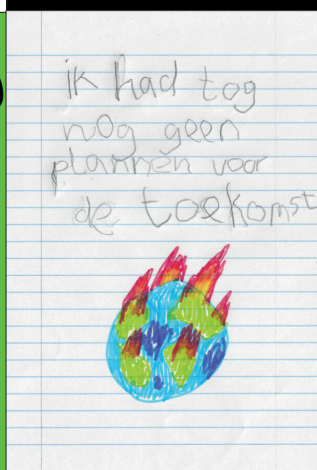 ik had tog
nog geen
plannen voor
de toekomst